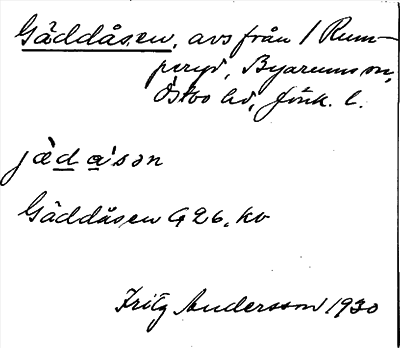 Gäddåsen, avs från 1 Rum-
peryd, Byarums sn,
Östbo hd, Jönk. l.
jä̀da̍sən
Gäddåsen G 26, kv
Fritz Andersson 1930